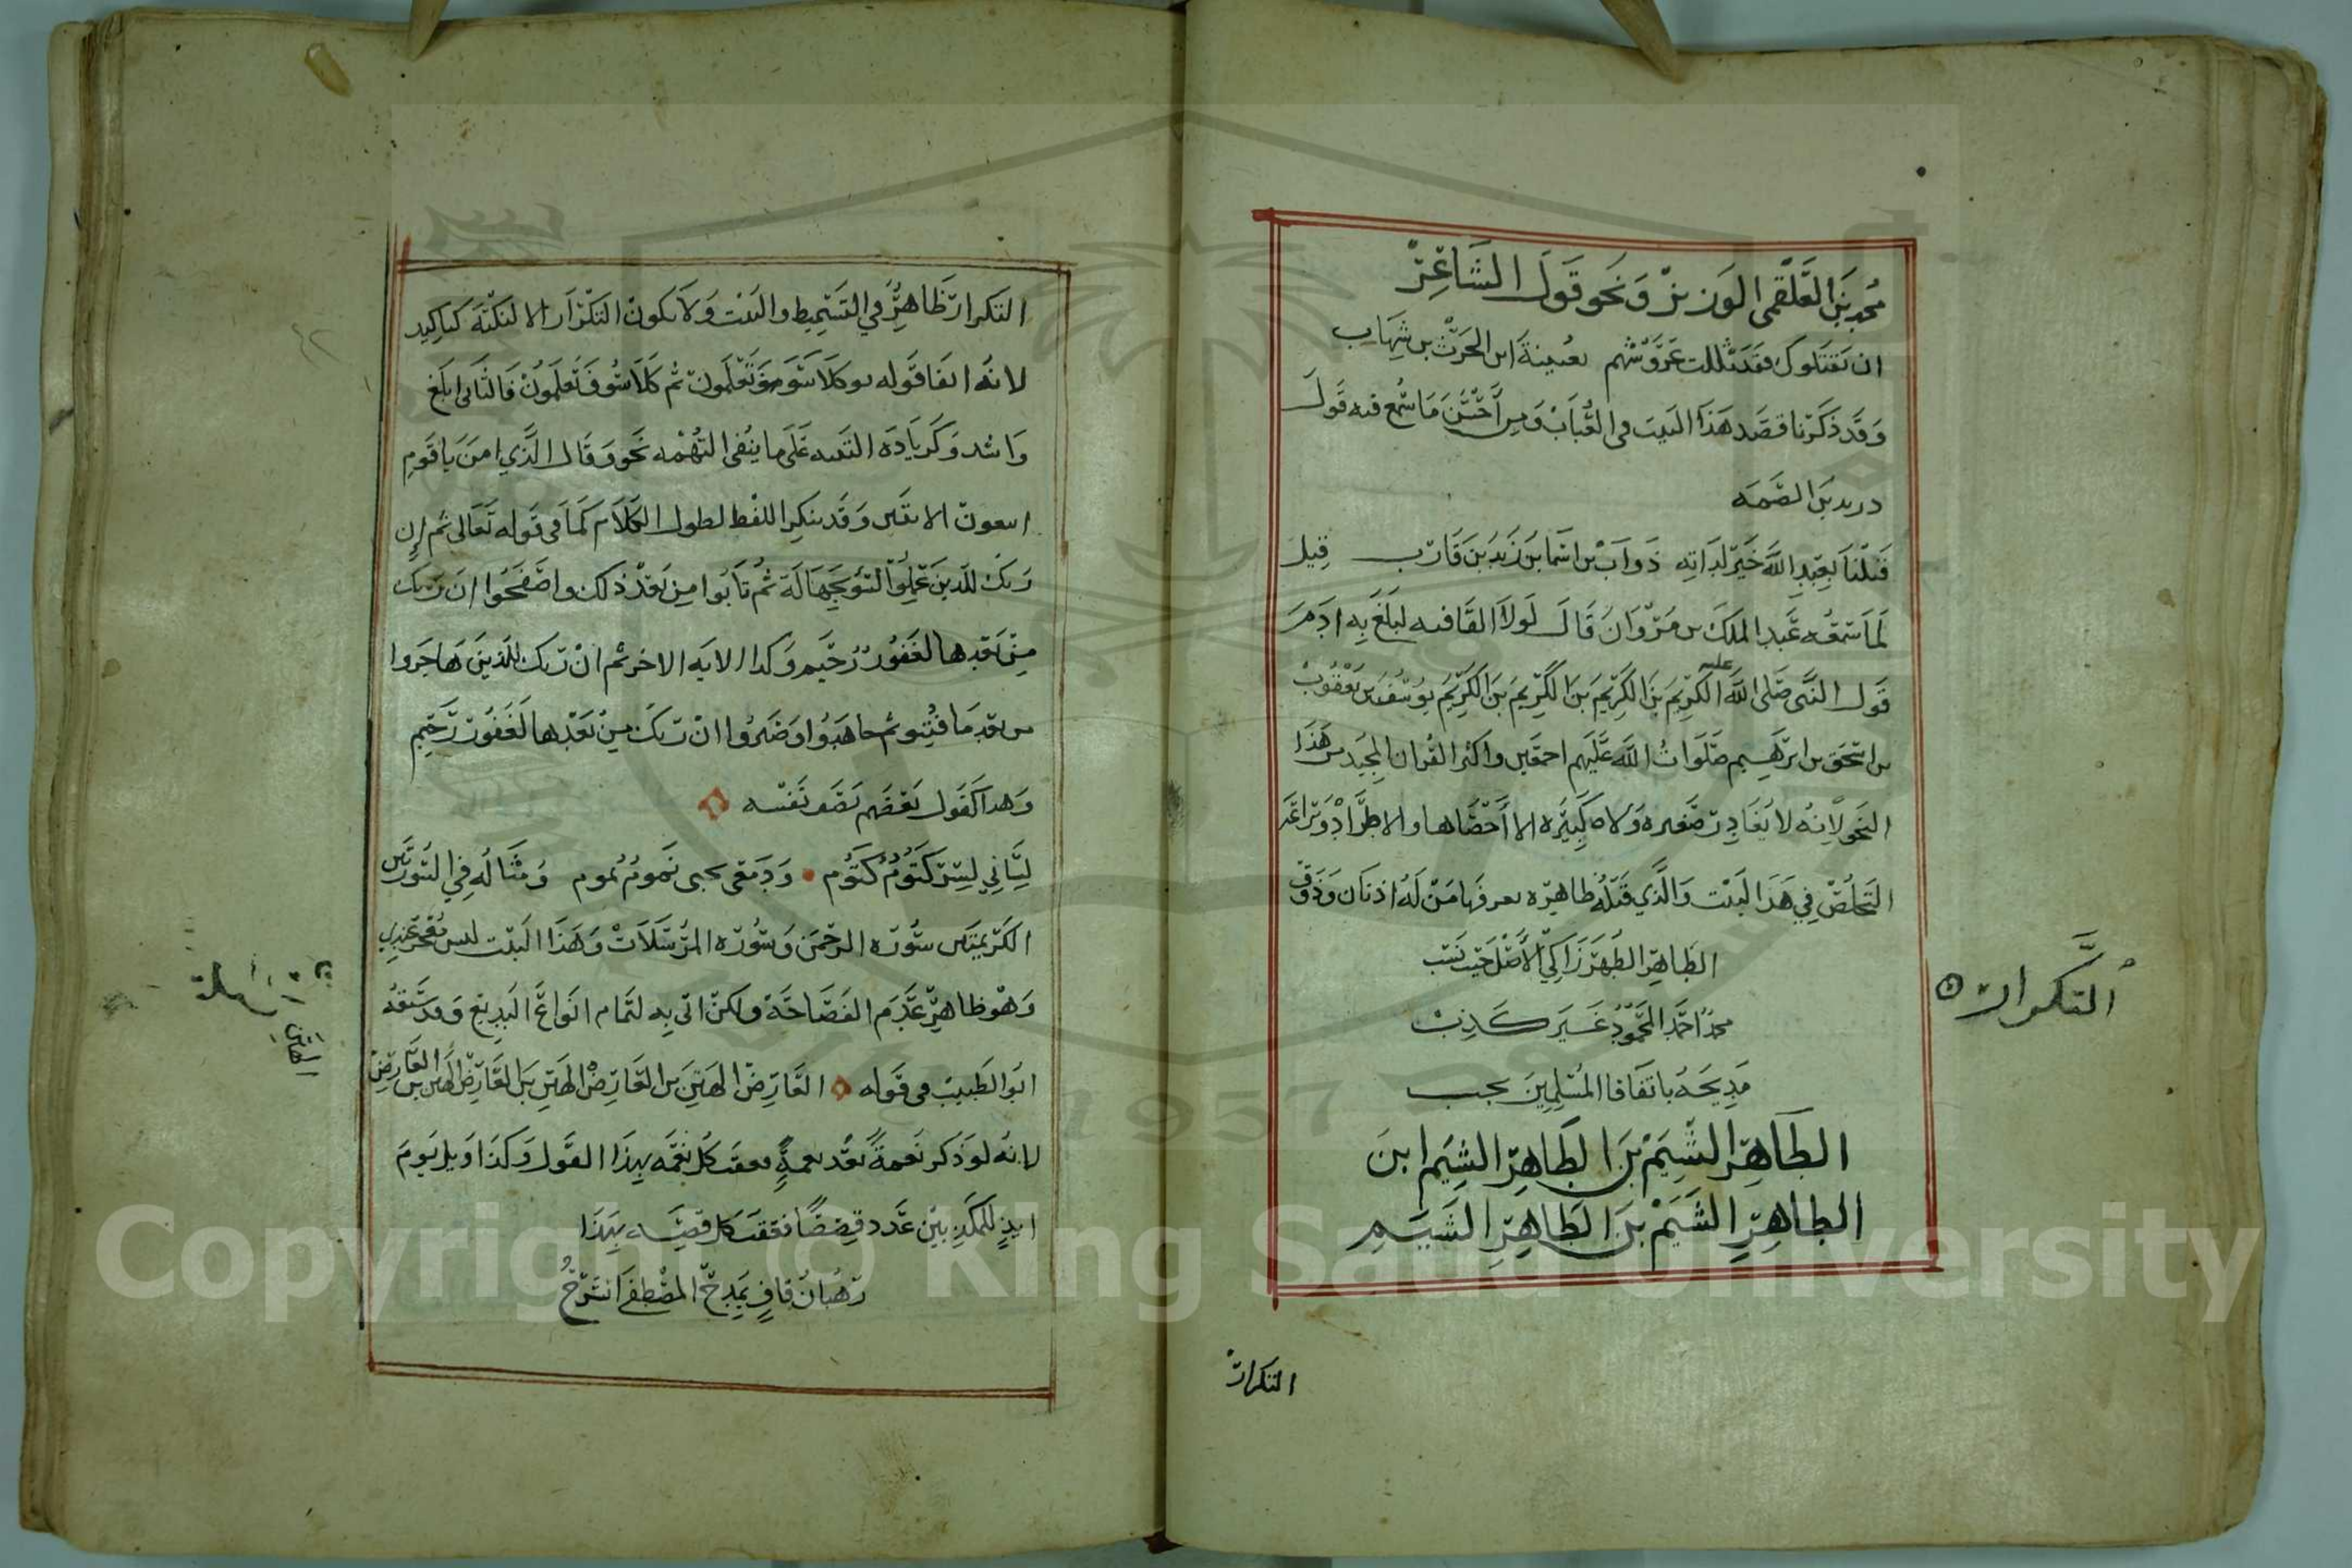 محمد بن العلقمي الوزير ونحو قول الشاعر
ان يقتلوك فقد ثللت عروشهم بعيينة ابن الحرث بن شهاب
وقد ذكرنا قصد هذا البيت في العباب ومن احسن ما سمع فيه قول
دريد بن الصمه
قتلنا بعبد الله خير لداته ذواب بن اسما بن زيد بن قارب قيل
لما سمعه عبد الملك بن مروان قال لولا القافيه لبلغ به ادم
قول النبي صلى الله عليه الكريم بن الكريم بن الكريم بن الكريم يوسف بن يعقوب
بن اسحق بن ابرهيم صلوات الله عليهم اجمعين واكثر القران المجيد من هذا
النحو لانه لا يغادر صغيره ولا كبيره الا احصاها والاطراد وبراعه
التخلص في هذا البيت والذي قبله ظاهره يعرفها من له اذنان وذوق
الطاهر الطهر زاكي الاصل حيث نسب
محمد احمد المحمود غير كذب
مديحه باتفاق المسلمين يجب
الطاهر الشيم بن الطاهر الشيم ابن
الطاهر الشيم بن الطاهر الشيم
التكرار
التكرار
التكرار ظاهر في التسميط والبيت ولا يكون التكرار الا لنكته كتاكيد
لانه انفا قوله كلا سوف تعلمون ثم كلا سوف تعلمون فالثاني ابلغ
واشد وكزياده التنبيه على ما ينفي التهمه نحو وقال الذي امن يا قوم
اتبعون الايتين وقد يتكرر اللفظ لطول الكلام كما في قوله تعالى ثم ان
ربك للذين عملوا السوء بجهالة ثم تابوا من بعد ذلك واصلحوا ان ربك
من بعدها لغفور رحيم وكذا الايه الاخر ثم ان ربك للذين هاجروا
من بعد ما فتنوا ثم جاهدوا وصبروا ان ربك من بعدها لغفور رحيم
وهذا كقول بعضهم يصف نفسه
لساني لسر كتوم كتوم ودمعي بحبي نموم نموم ومثاله في السورتين
الكريمتين سورة الرحمن وسورة المرسلات وهذا البيت ليس
وهو ظاهر عدم الفصاحة ولكن اتى به لتمام انواع البديع وقد سبقه
ابو الطيب في قوله العارض الهتن بن العارض الهتن بن العارض الهتن بن العارض
لانه لو ذكر نعمة بعد نعمة فعقب كل نعمه بهذا القول وكذا ويل يوم
ايذ للمكذبين عدد قصصا فعقب كل قصه بهذا
رهبان قاف بمدح المصطفى انشرح